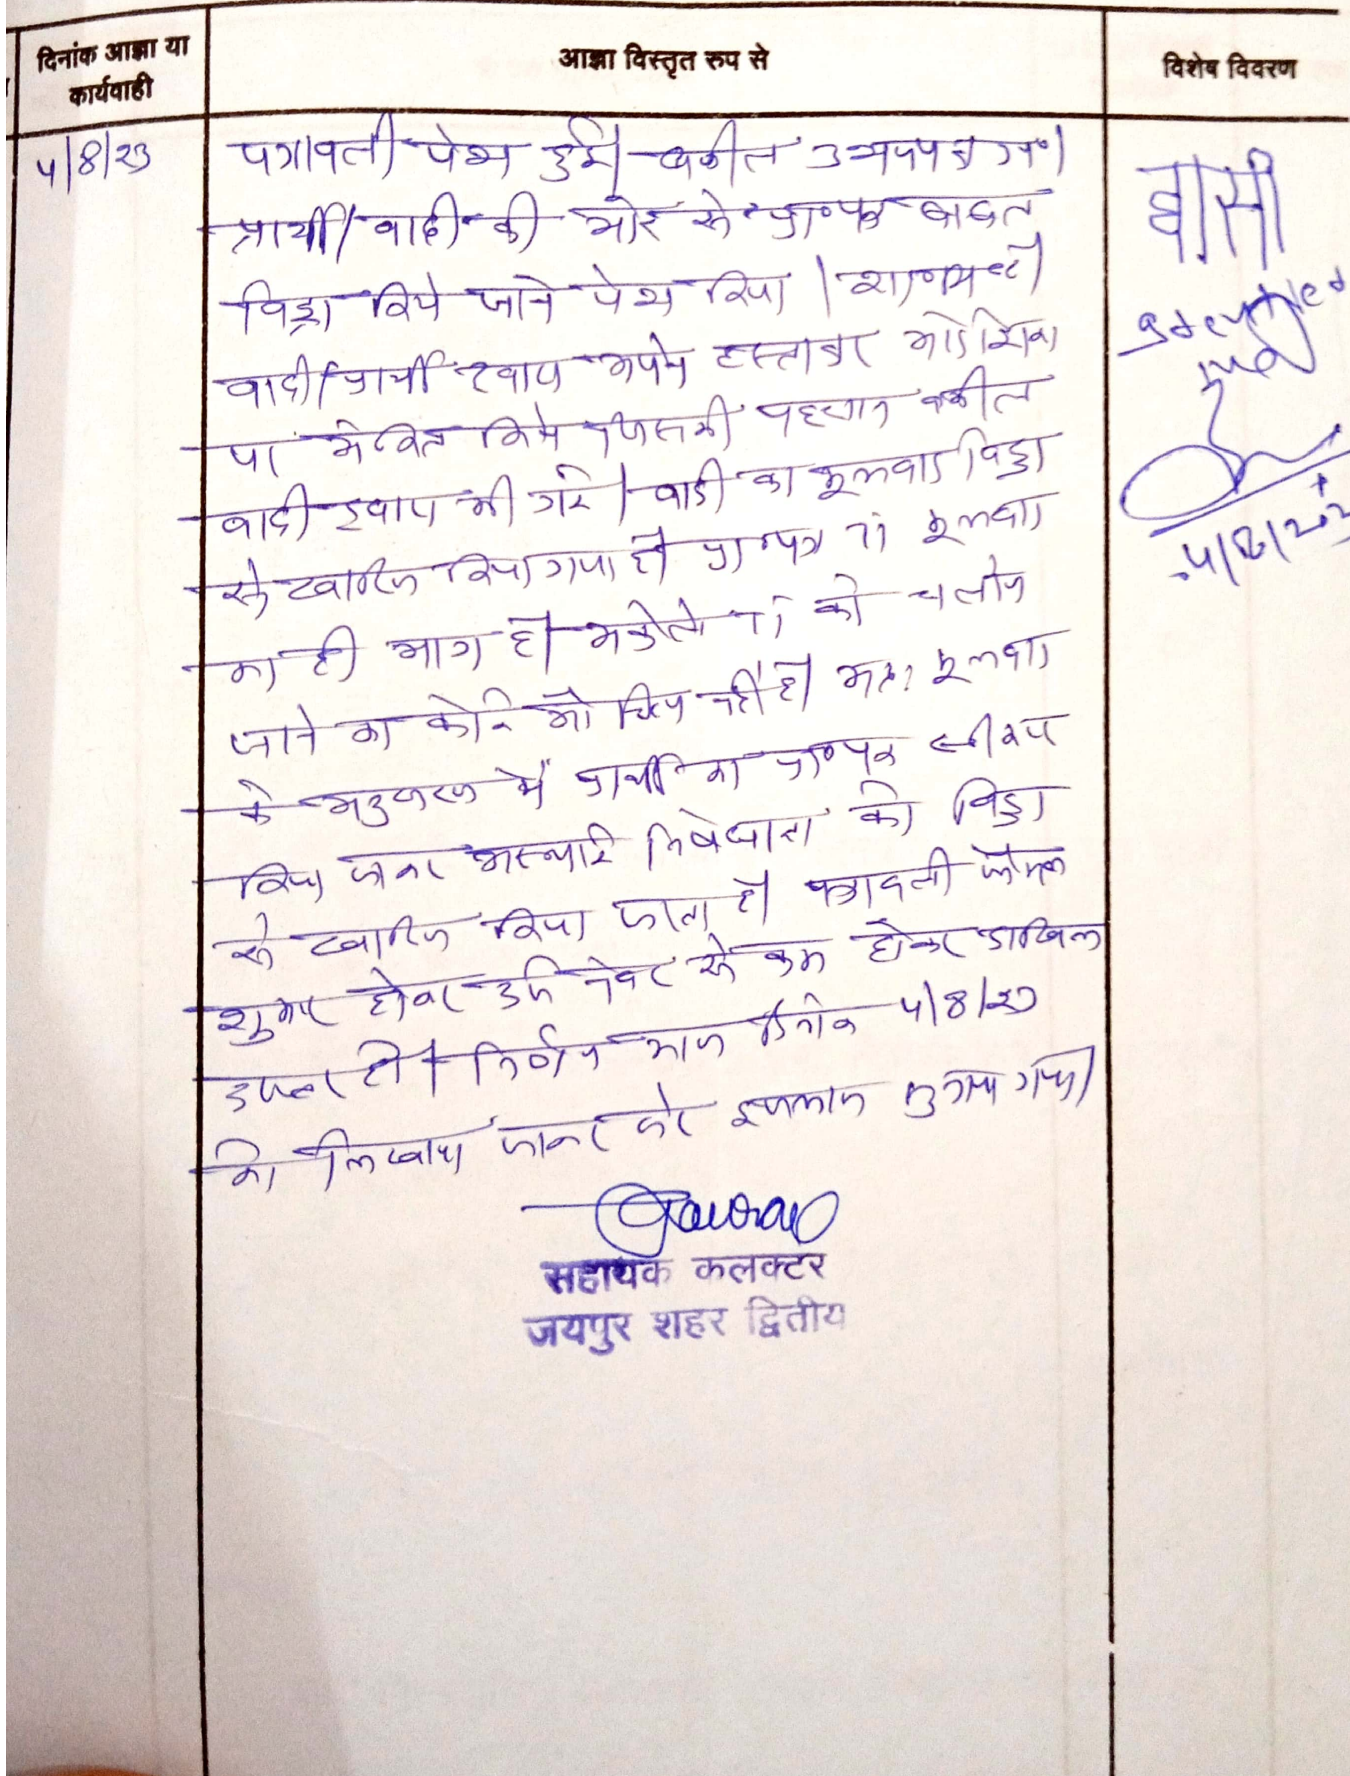 दिनांक आज्ञा या
कार्यवाही
आज्ञा विस्तृत रुप से
विशेष विवरण
५/8/२३
पत्रावली पेश हुई। वकील उभयपक्ष उप०।
प्रार्थी/वादी की ओर से प्रा०पत्र बाबत
विड्रा किये जाने पेश किया।
वादी/प्रार्थी द्वारा अपने हस्ताक्षर ऑर्डरशीट
पर अंकित किये जिसकी पहचान वकील
वादी द्वारा की गई। वादी का मूलवाद विड्रा
से खारिज किया गया है। प्रा०पत्र TI मूलवाद
का ही भाग है। अकेले TI को चलाये
जाने का कोई औचित्य नहीं है। अतः मूलवाद
के अनुसरण में प्रार्थी का प्रा०पत्र स्वीकार
किया जाकर अस्थाई निषेधाज्ञा को विड्रा
से खारिज किया जाता है। पत्रावली फैसल
शुमार होकर दर्ज नंबर से कम होकर दाखिल
दफ्तर हो। निर्णय आज दिनांक ५/8/२३
को लिखाया जाकर सरे इजलास सुनाया गया।
सहायक कलक्टर
जयपुर शहर द्वितीय
घासी
Identified
५/8/२०२